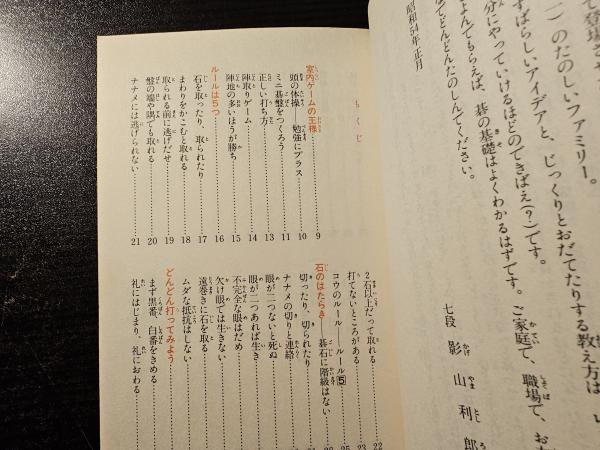 て登場させ
（一）のたのしいファミリー。
すばらしいアイデアと、じっくりとおだてたりする教え方は
分にやっていけるほどのできばえ(？)です。
よんでもらえば、碁の基礎はよくわかるはずです。ご家庭で、職場で、お
ほてどんどんたのしんでください。
昭和54年正月
七段 影山利郎
もくじ
室内ゲームの王様 9
頭の体操――勉強にプラス 10
ミニ碁盤をつくろう 11
正しい打ち方 12
陣取りゲーム 14
陣地の多いほうが勝ち 15
ルールは5つ 16
石を取ったり、取られたり 17
まわりをかこむと取れる 18
取られる前に逃げだせ 19
盤の端や隅でも取れる 20
ナナメには逃げられない 21
2石以上だって取れる 22
打てないところがある 23
コウのルール――ルール5 25
石のはたらき――碁石に階級はない
切ったり、切られたり
ナナメの切りと連絡
眼が二つないと死ぬ
眼が二つあれば生き
不完全な眼はだめ
欠け眼では生きない
遠巻きに石を取る
ムダな抵抗はしない
どんどん打ってみよう
まず黒番、白番をきめる
礼にはじまり、礼におわる